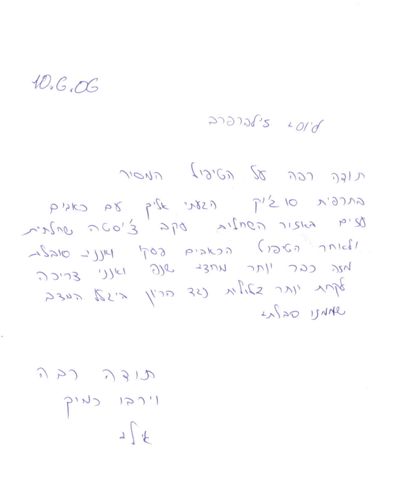 10.6.06
ליוסי זילברפרב
תודה רבה על הטיפול המסיר
בתרפית סוג'יק הגעתי אליך עם כאבים
עזים באזור השחלות עקב ציסטה שחלתית
ולאחר הטיפול הכאבים פסקו ואנני סובלת
מזה כבר יותר מחצי שנה ואנני צריכה
לקחת יותר גלולות נגד הריון ביגלל המצב
שממנו סבלתי
תודה רבה
וירבו כמיק